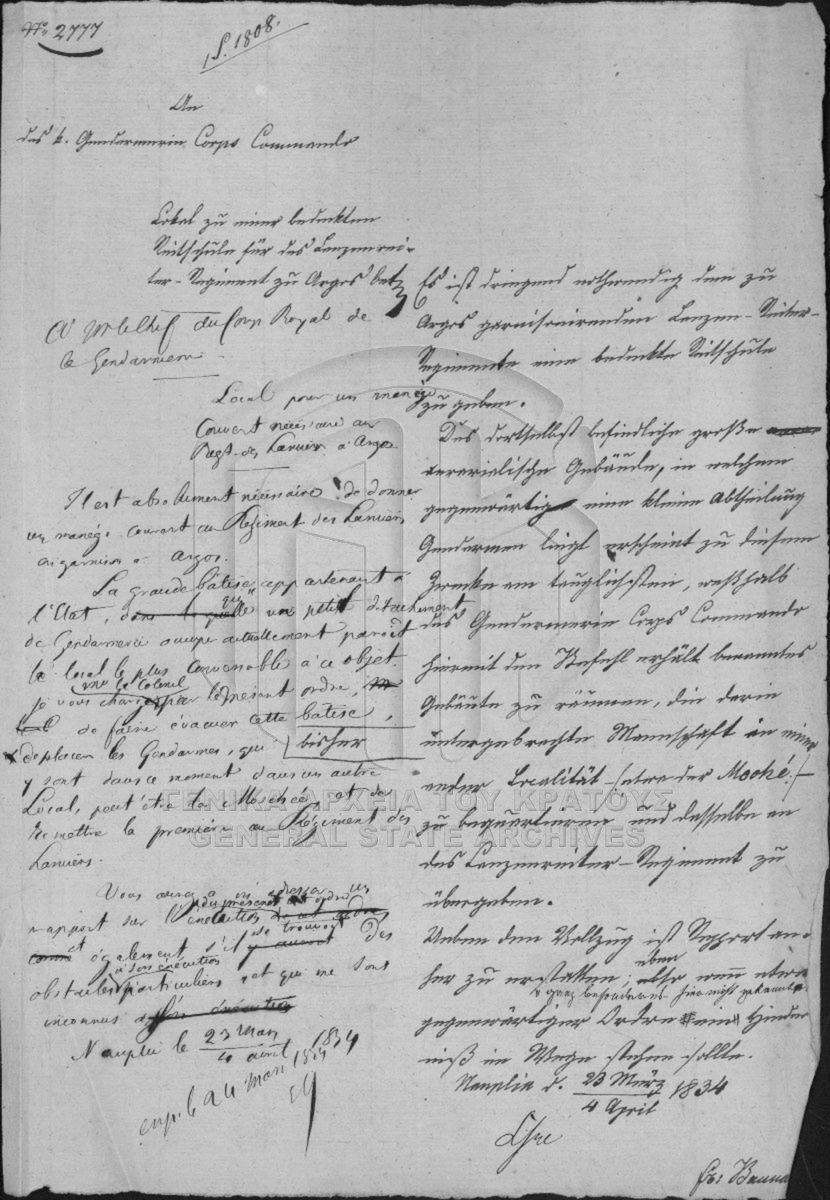 No 2777
1 S. 1808.
An
das k. Gendarmerie Corps Commando
Lokal zu einer bedeckten
Reitschule für das Lanzenrei-
ter-Regiment zu Argos betr.
Es ist dringend nothwendig dem zu
Argos garnisonirenden Lanzen-Reiter-
Regimente eine bedeckte Reitschule
zu geben.
Das dortselbst befindliche große
ararialische Gebäude, in welchem
gegenwärtig eine kleine Abtheilung
Gendarmen liegt erscheint zu diesem
Zwecke am tauglichsten, weßhalb
das Gendarmerie Corps Commando
hiermit den Befehl erhält benanntes
Gebäude zu räumen, die darin
untergebrachte Mannschaft in einer
andern Localität (etwa der Moché)
zu bequartieren und dasselbe an
das Lanzenreiter-Regiment zu
übergeben.
Ueber den Vollzug ist Rapport an-
her zu erstatten; eben
also wenn etwa
ganz besonderes hier nicht gekannte
gegenwärtiger Ordre ein Hinder
niß im Wege stehen sollte.
Nauplia d. 23 März 1834
4 April
du Corps Royal de
la Gendarmerie
Local pour un manège
couvert nécessaire au
Regt. des Lanciers à Argos
Il est absolument nécessaire de donner
un manège couvert au Régiment des Lanciers
en garnison à Argos.
La grande bâtise appartenant à
l'Etat, dans laquelle qui un petit détachement
de Gendarmerie occupe actuellement paroît
le local le plus convenable à ce objet.
Mr le Colonel
je vous charge par le présent ordre,
de faire évacuer cette bâtise,
bisher
déplacer les Gendarmes, qui
y sont dans ce moment dans un autre
Local, peut être la Moschée et de
remettre la première au Régiment des
Lanciers.
Vous aurez à m'adresser un
du présent ordre
rapport sur l'exécution de cet ordre
se trouvoit
comme et également s'il y auroit des
à son exécution
obstacles particuliers et qui me sont
inconnus à son exécution
Nauplie le 23 Mars 1834
4 avril
exp. le 24 Mars 1834
ΓΕΝΙΚΑ ΑΡΧΕΙΑ ΤΟΥ ΚΡΑΤΟΥΣ
GENERAL STATE ARCHIVES